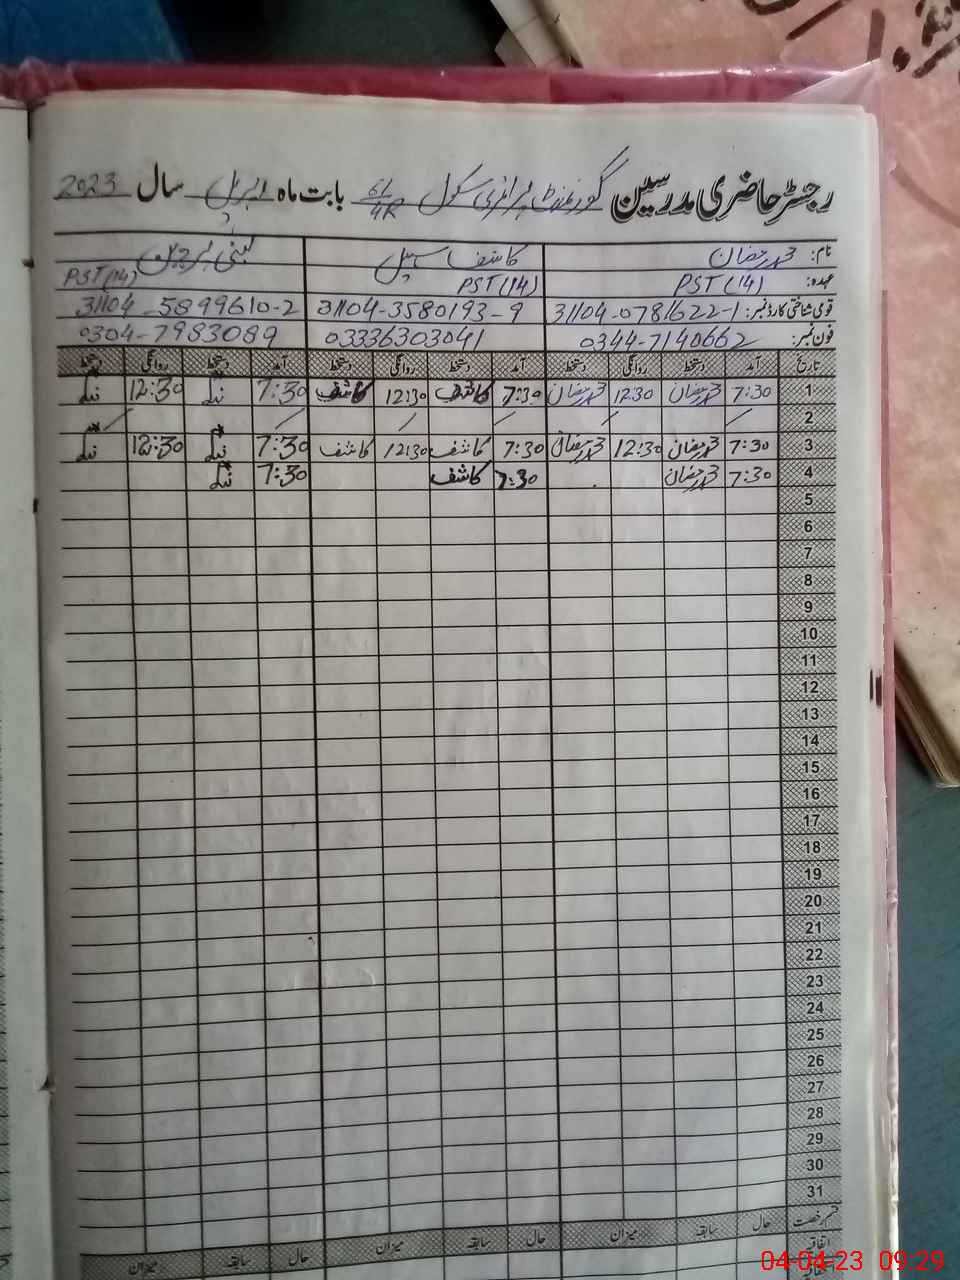 رجسٹر حاضری مدرسین گورنمنٹ پرائمری سکول 61/4R بابت ماہ اپریل سال 2023
نام: محمد رمضان کاشف سہیل
عہدہ: PST (14) PST (14) PST (14)
قومی شناختی کارڈ نمبر: 31104-0781622-1 31104-3580193-9 31104-5899610-2
فون نمبر: 0344-7140662 03336303041 0304-7983089
تاریخ آمد دستخط روانگی دستخط آمد دستخط روانگی دستخط آمد دستخط روانگی دستخط
1 7:30 محمد رمضان 12:30 محمد رمضان 7:30 کاشف 12:30 کاشف 7:30 12:30
2
3 7:30 محمد رمضان 12:30 محمد رمضان 7:30 کاشف 12:30 کاشف 7:30 12:30
4 7:30 محمد رمضان 7:30 کاشف 7:30
5
6
7
8
9
10
11
12
13
14
15
16
17
18
19
20
21
22
23
24
25
26
27
28
29
30
31
قسم رخصت حال سابقہ میزان حال سابقہ میزان حال سابقہ میزان
اتفاقیہ
04-04-23 09:29